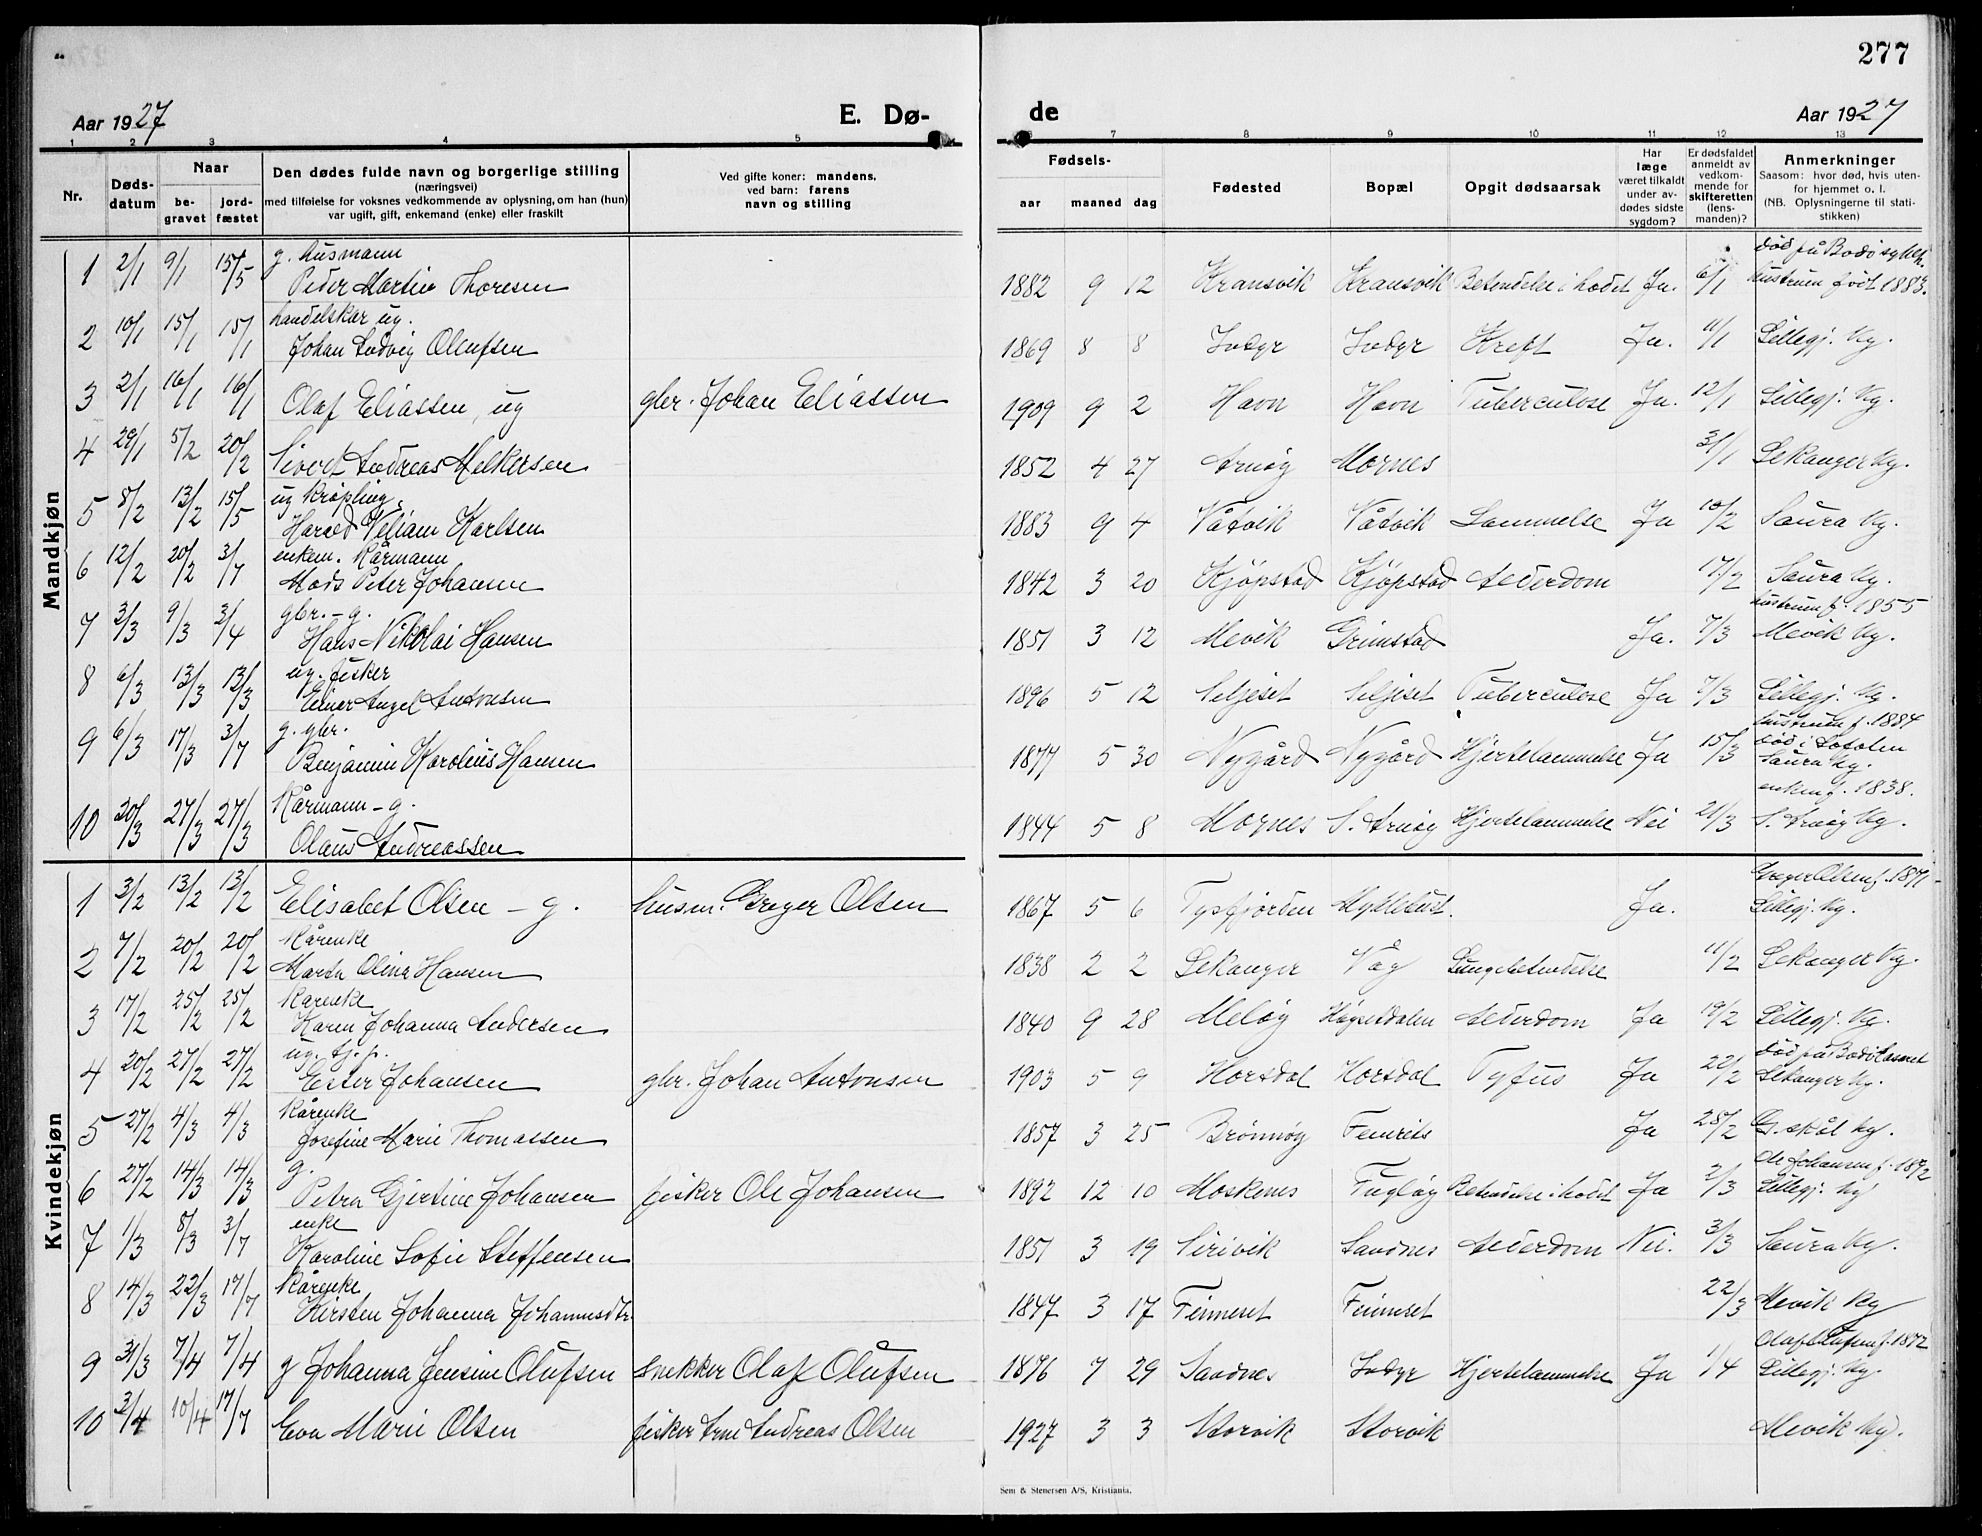 277
Aar 1927
E. Dø-
de
Aar 1927
1 2 3 4 5 6 7 8 9 10 11 12 13
Nr.
Døds-
datum
Naar
be-
gravet
jord-
fæstet
Den dødes fulde navn og borgerlige stilling
(næringsvei)
med tilføielse for voksnes vedkommende av oplysning, om han (hun)
var ugift, gift, enkemand (enke) eller fraskilt
Ved gifte koner: mandens,
ved barn: farens
navn og stilling
Fødsels-
aar maaned dag
Fødested
Bopæl
Opgit dødsaarsak
Har
læge
været tilkaldt
under av-
dødes sidste
sygdom?
Er dødsfaldet
anmeldt av
vedkom-
mende for
skifteretten
(lens-
manden)?
Anmerkninger
Saasom: hvor død, hvis uten-
for hjemmet o. l.
(NB. Oplysningerne til stati-
stikken)
Mandkjøn
g. husmann død på Bodø sykeh.
1 2/1 9/1 15/5 Peder Martin Thoresen 1882 9 12 Kransvik Kransvik Betendelse i hodet Ja. 6/1 hustruen født 1883.
handelskar ug.
2 10/1 15/1 15/1 Johan Ludvig Olufsen 1869 8 8 Inndyr Inndyr Kreft Ja. 11/1 Lillegj. kg.
3 2/1 16/1 16/1 Olaf Eliassen, ug gbr. Johan Eliassen 1909 9 2 Havn Havn Tuberculose Ja. 12/1 Lillegj. kg.
4 29/1 5/2 20/2 Sivert Andreas Melkersen 1852 4 27 Arnøy Mornes 31/1 Lekanger kg.
ug krøpling
5 8/2 13/2 15/5 Harald Veliam Karlsen 1883 9 4 Våtvik Våtvik Lammelse Ja 10/2 Saura kg.
enkem. Kårmann
6 12/2 20/2 3/7 Mads Peter Johansen 1842 3 20 Kjøpstad Kjøpstad Alderdom 17/2 Saura kg.
gbr. - g. hustruen f. 1855
7 3/3 9/3 3/4 Hans Nikolai Hansen 1851 3 12 Mevik Grimstad Ja. 7/3 Mevik kg.
ug. fisker
8 6/3 13/3 13/3 Einar Angel Antonsen 1896 5 12 Seljeset Seljeset Tuberculose Ja 7/3 Lillegj. kg.
g. gbr. hustruen f. 1884
død i Lofoten
9 6/3 17/3 3/7 Benjamin Karolius Hansen 1877 5 30 Nygård Nygård Hjertelammelse Ja 15/3 Saura kg.
Kårmann - g. enken f. 1838.
10 20/3 27/3 27/3 Olaus Andreassen 1844 5 8 Mornes S. Arnøy Hjertelammelse Nei 21/3 S. Arnøy kg.
Kvindekjøn
Greger Olsen f. 1871
1 3/2 13/2 13/2 Elisabet Olsen - g. husm. Greger Olsen 1867 5 6 Tysfjorden Myklebust. Ja. Lillegj. kg.
Kårenke
2 7/2 20/2 20/2 Marta Olina Hansen 1838 2 2 Lekanger Våg Lungebetendelse 11/2 Lekanger kg.
Kårenke
3 17/2 25/2 25/2 Karen Johanna Andersen 1840 9 28 Meløy Høgsetdalen Alderdom Ja 19/2 Lillegj. kg.
ug. tj. p. død på Bodø lasaret
4 20/2 27/2 27/2 Ester Johansen gbr. Johan Antonsen 1903 5 9 Horsdal Horsdal Tyfus Ja 22/2 Lekanger kg.
Kårenke
5 27/2 4/3 4/3 Josefine Marie Thomassen 1857 3 25 Brønnøy Femris Ja 28/2 G.skål kg.
g. Ole Johansen f. 1892
6 27/2 14/3 14/3 Petra Gjertine Johansen fisker Ole Johansen 1892 12 10 Moskenes Fugløy Betendelse i hodet Ja 3/3 Lillegj. kg
enke
7 1/3 8/3 3/7 Karoline Sofie Steffensen 1851 3 19 Sirivik Sandnes Alderdom Nei. 3/3 Saura kg.
Kårenke
8 14/3 22/3 17/7 Kirsten Johanna Johannesdtr. 1847 3 17 Finneset Finneset 22/3 Mevik kg
Olaf Olufsen f. 1872
9 31/3 7/4 7/4 g Johanna Jensine Olufsen snekker Olaf Olufsen 1876 7 29 Sandnes Inndyr Hjertelammelse Ja 1/4 Lillegj. kg.
10 3/4 10/4 17/7 Eva Marie Olsen fisker Arne Andreas Olsen 1927 3 3 Storvik Storvik Mevik kg.
Sem & Stenersen A/S, Kristiania.